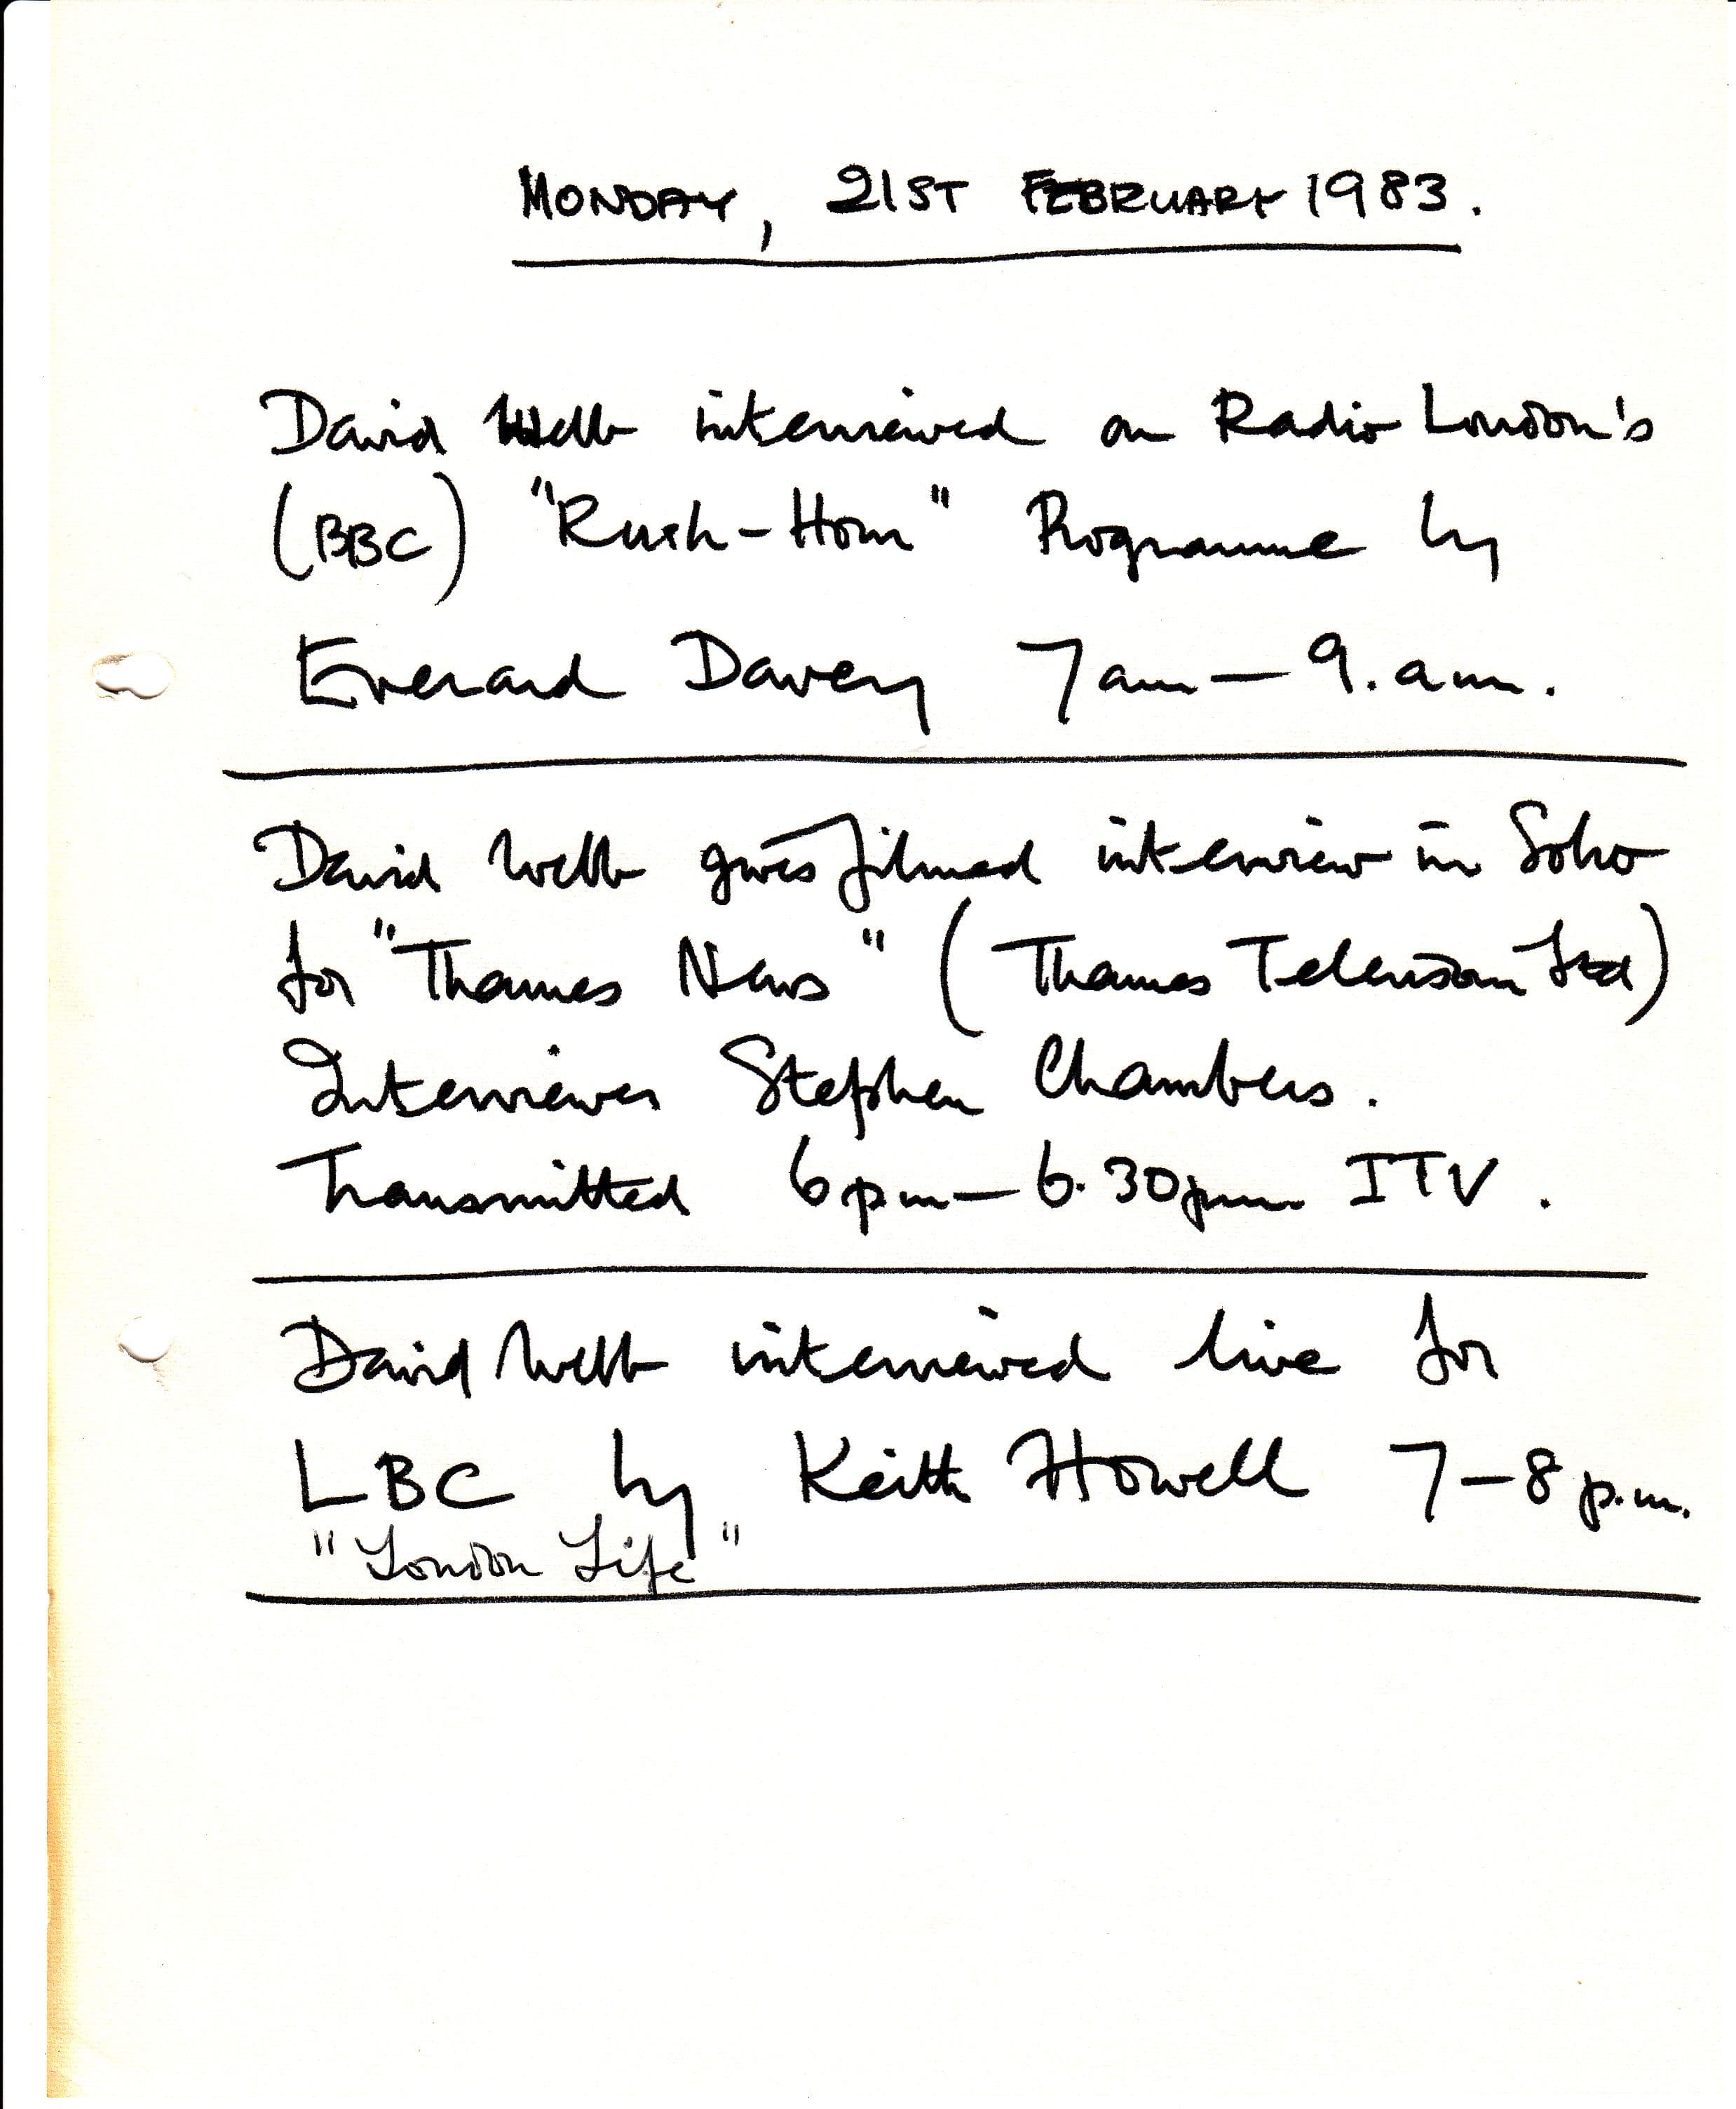 MONDAY, 21ST FEBRUARY 1983.
David Webb interviewed on Radio London's
(BBC) "Rush-Hour" Programme by
Everard Davey 7am — 9.am.
David Webb gives filmed interview in Soho
for "Thames News" (Thames Television Ltd)
Interviewer Stephen Chambers.
Transmitted 6pm — 6.30pm ITV.
David Webb interviewed live for
LBC by Keith Howell 7-8 p.m.
"London Life"